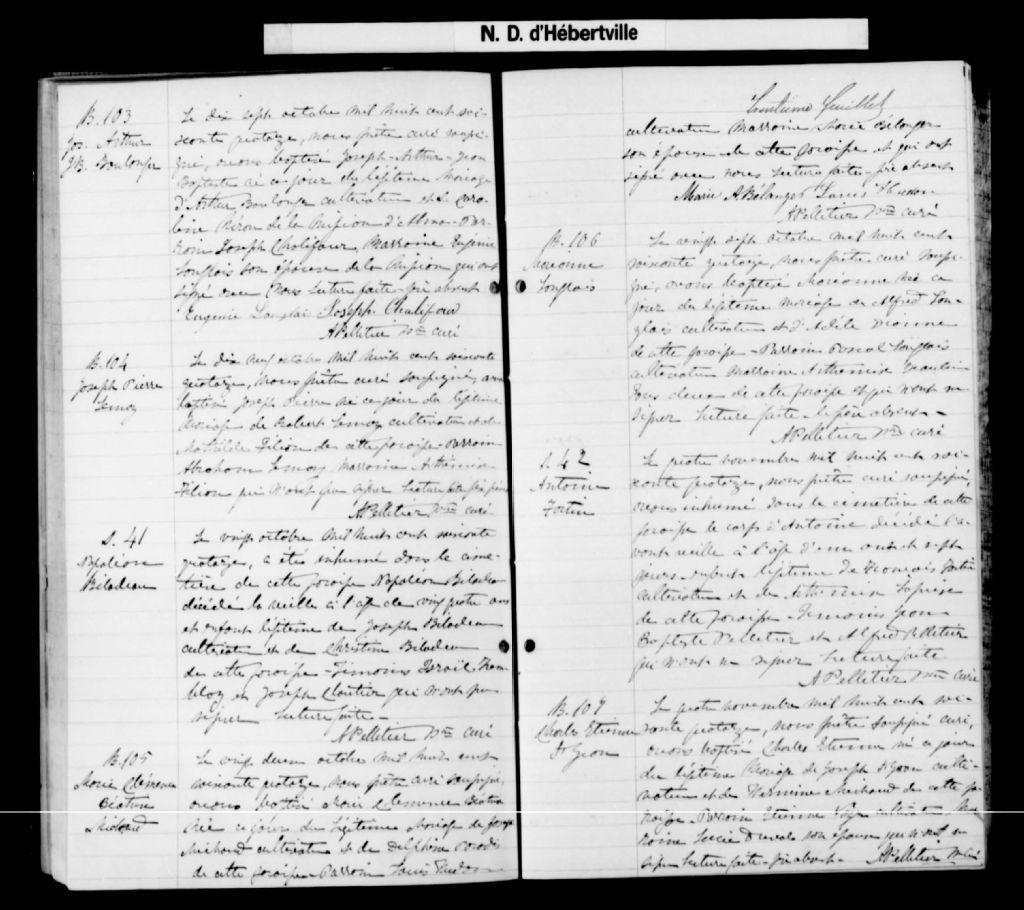 N. D. d'Hébertville
B. 103
Jos. Arthur
J.B. Boulonger
Le dix sept octobre mil huit cent soi-
xante quatorze, nous prêtre curé soussi-
gné, avons baptisé Joseph-Arthur-Jean
Baptiste né ce jour du légitime mariage
d'Arthur Boulonger cultivateur et de Caro-
line de la Mission d'Alma - Par-
rain Joseph Chalifour, Marraine Eugénie
Langlois son épouse de la Mission qui ont
signé avec Nous Lecture faite - père absent
Eugenie Langlai Joseph Chalifour
A Pelletier Ptre curé
B. 104
Joseph Pierre
Lemay
Le dix neuf octobre mil huit cent soixante
quatorze, Nous prêtre curé soussigné, avons
baptisé Joseph Pierre né ce jour du légitime
mariage de Robert Lemay cultivateur et de
Mathilde Filion de cette paroisse - Parrain
Abraham Lemay Marraine Arthémise
Filion qui n'ont pu signer Lecture faite
A Pelletier Ptre curé
S. 41
Napoléon
Bilodeau
Le vingt octobre mil huit cent soixante
quatorze, a été inhumé dans le cime-
tière de cette paroisse Napoléon Bilodeau
décédé la veille à l'âge de vingt quatre ans
et enfant légitime de Joseph Bilodeau
cultivateur et de Christine Bilodeau
de cette paroisse - Témoins Israël Tram-
blay et Joseph Cloutier qui n'ont pu
signer Lecture faite -
A Pelletier Ptre curé
B. 105
Marie Clémence
Béatrice
Michaud
Le vingt deux octobre mil huit cent
soixante quatorze, Nous prêtre curé soussigné,
avons baptisé Marie Clémence Béatrice
née ce jour du légitime mariage de Joseph
Michaud cultivateur et de Delphine Paradis
de cette paroisse - Parrain Louis Hudon
feuillet
cultivateur Marraine Marie Bélanger
son épouse de cette paroisse et qui ont
signé avec nous Lecture faite - père absent
Marie A Bélanger Louis Hudon
A Pelletier Ptre curé
B. 106
Marianne
Langlais
Le vingt sept octobre mil huit cent
soixante quatorze, nous prêtre curé soussi-
gné, avons baptisé Marianne née ce
jour du légitime mariage de Alfred Lan-
glais cultivateur et d'Adèle Dionne
de cette paroisse - Parrain Pascal Langlais
cultivateur Marraine Arthémise
tous deux de cette paroisse et qui n'ont su
signer Lecture faite - le père absent -
A Pelletier Ptre curé
S. 42
Antoine
Fortin
Le quatre novembre mil huit cent soi-
xante quatorze, nous prêtre curé soussigné,
avons inhumé dans le cimetière de cette
paroisse le corps d'Antoine décédé l'a-
vant veille à l'âge d'un an et sept
jours - enfant légitime de François Fortin
cultivateur et de Arthémise Lapointe
de cette paroisse - Témoins Jean
Baptiste Pelletier et Alfred Pelletier
qui n'ont su signer Lecture faite
A Pelletier Ptre curé
B. 107
Charles Etienne
St Geon
Le quatre novembre mil huit cent soi-
xante quatorze, nous prêtre soussigné curé,
avons baptisé Charles Etienne né ce jour
du légitime mariage de Joseph St Geon culti-
vateur et de Hermine Michaud de cette pa-
roisse. Parrain Etienne cultivateur Mar-
raine Lucie Duval son épouse qui n'ont su
signer Lecture faite - père absent - A Pelletier Ptre curé